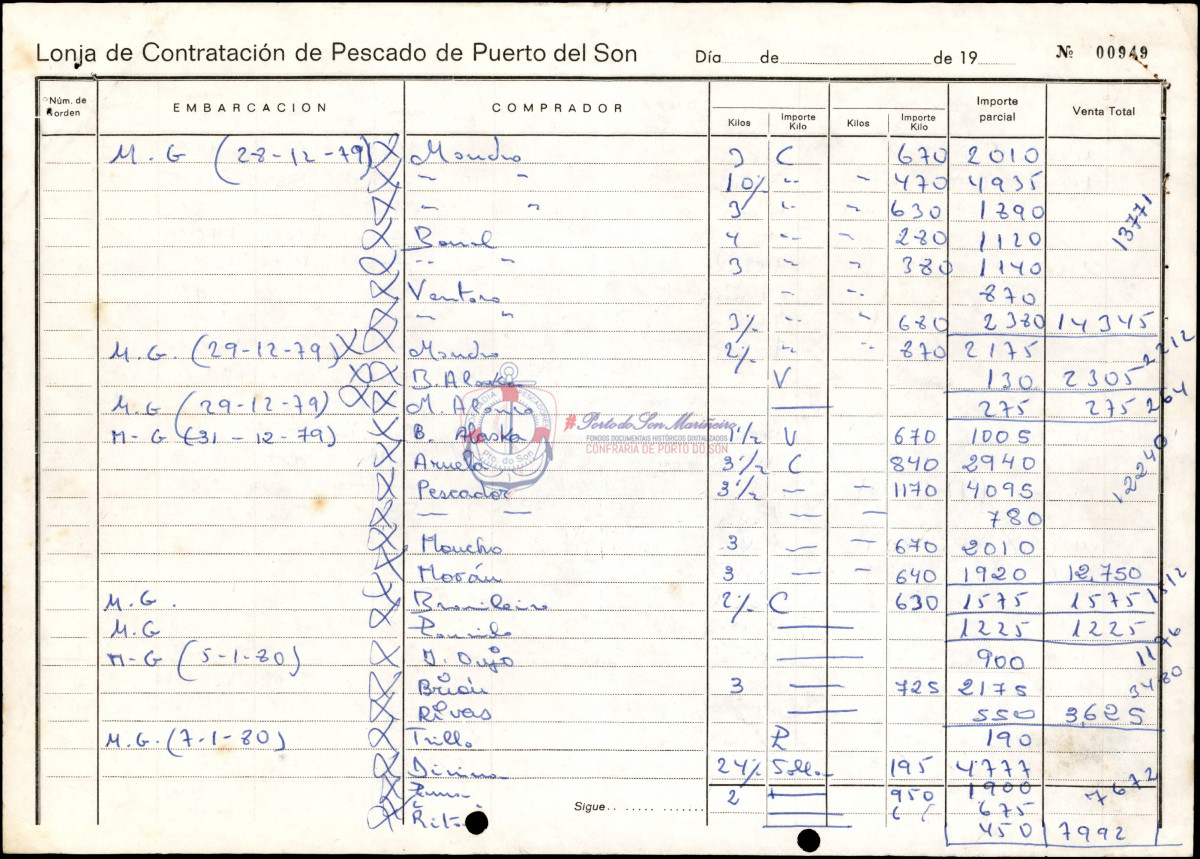 Lonja de Contratación de Pescado de Puerto del Son Día de de 19 Nº 00949
Núm. de orden EMBARCACION COMPRADOR Kilos Importe Kilo Kilos Importe Kilo Importe parcial Venta Total
M. G (28-12-79) Moucho 3 C 670 2010
" " 10½ " " 470 4935
" " 3 " " 630 1890 13771
4 " " 280 1120
" " 3 " " 380 1140
Ventoso " " 870
" " 3½ " " 680 2380 14345
M. G. (29-12-79) Moucho 2½ " " 870 2175 2212
B. Alaska V 130 2305
M. G (29-12-79) — 275 275 264
M-G (31-12-79) B. Alaska 1½ V 670 1005
3½ C 840 2940 12240
Pescador 3½ — — 1170 4095
— — — — 780
Moucho 3 — — 670 2010
Morán 3 — — 640 1920 12,750
M. G. Brasileiro 2½ C 630 1575 1575 1512
M. G — 1225 1225
M-G (5-1-80) — 900 1176
Brión 3 — 725 2175 3480
Rivas — 550 3625
M. G. (7-1-80) Trillo 190
24½ 195 4777
2 — 950 1900 7672
Sigue 675
450 7992
#Porto do Son Mariñeiro
FONDOS DOCUMENTAIS HISTÓRICOS DIGITALIZADOS
CONFRARIA DE PORTO DO SON
Pto. do Son